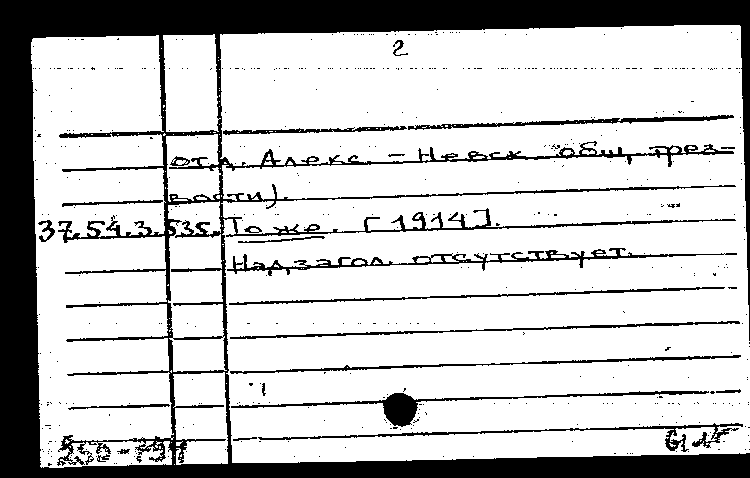 2
отд. Алекс.-Невск. общ. трез-
вости).
37.54.3.535. То же. [1914].
Надзагол. отсутствует.
250-794